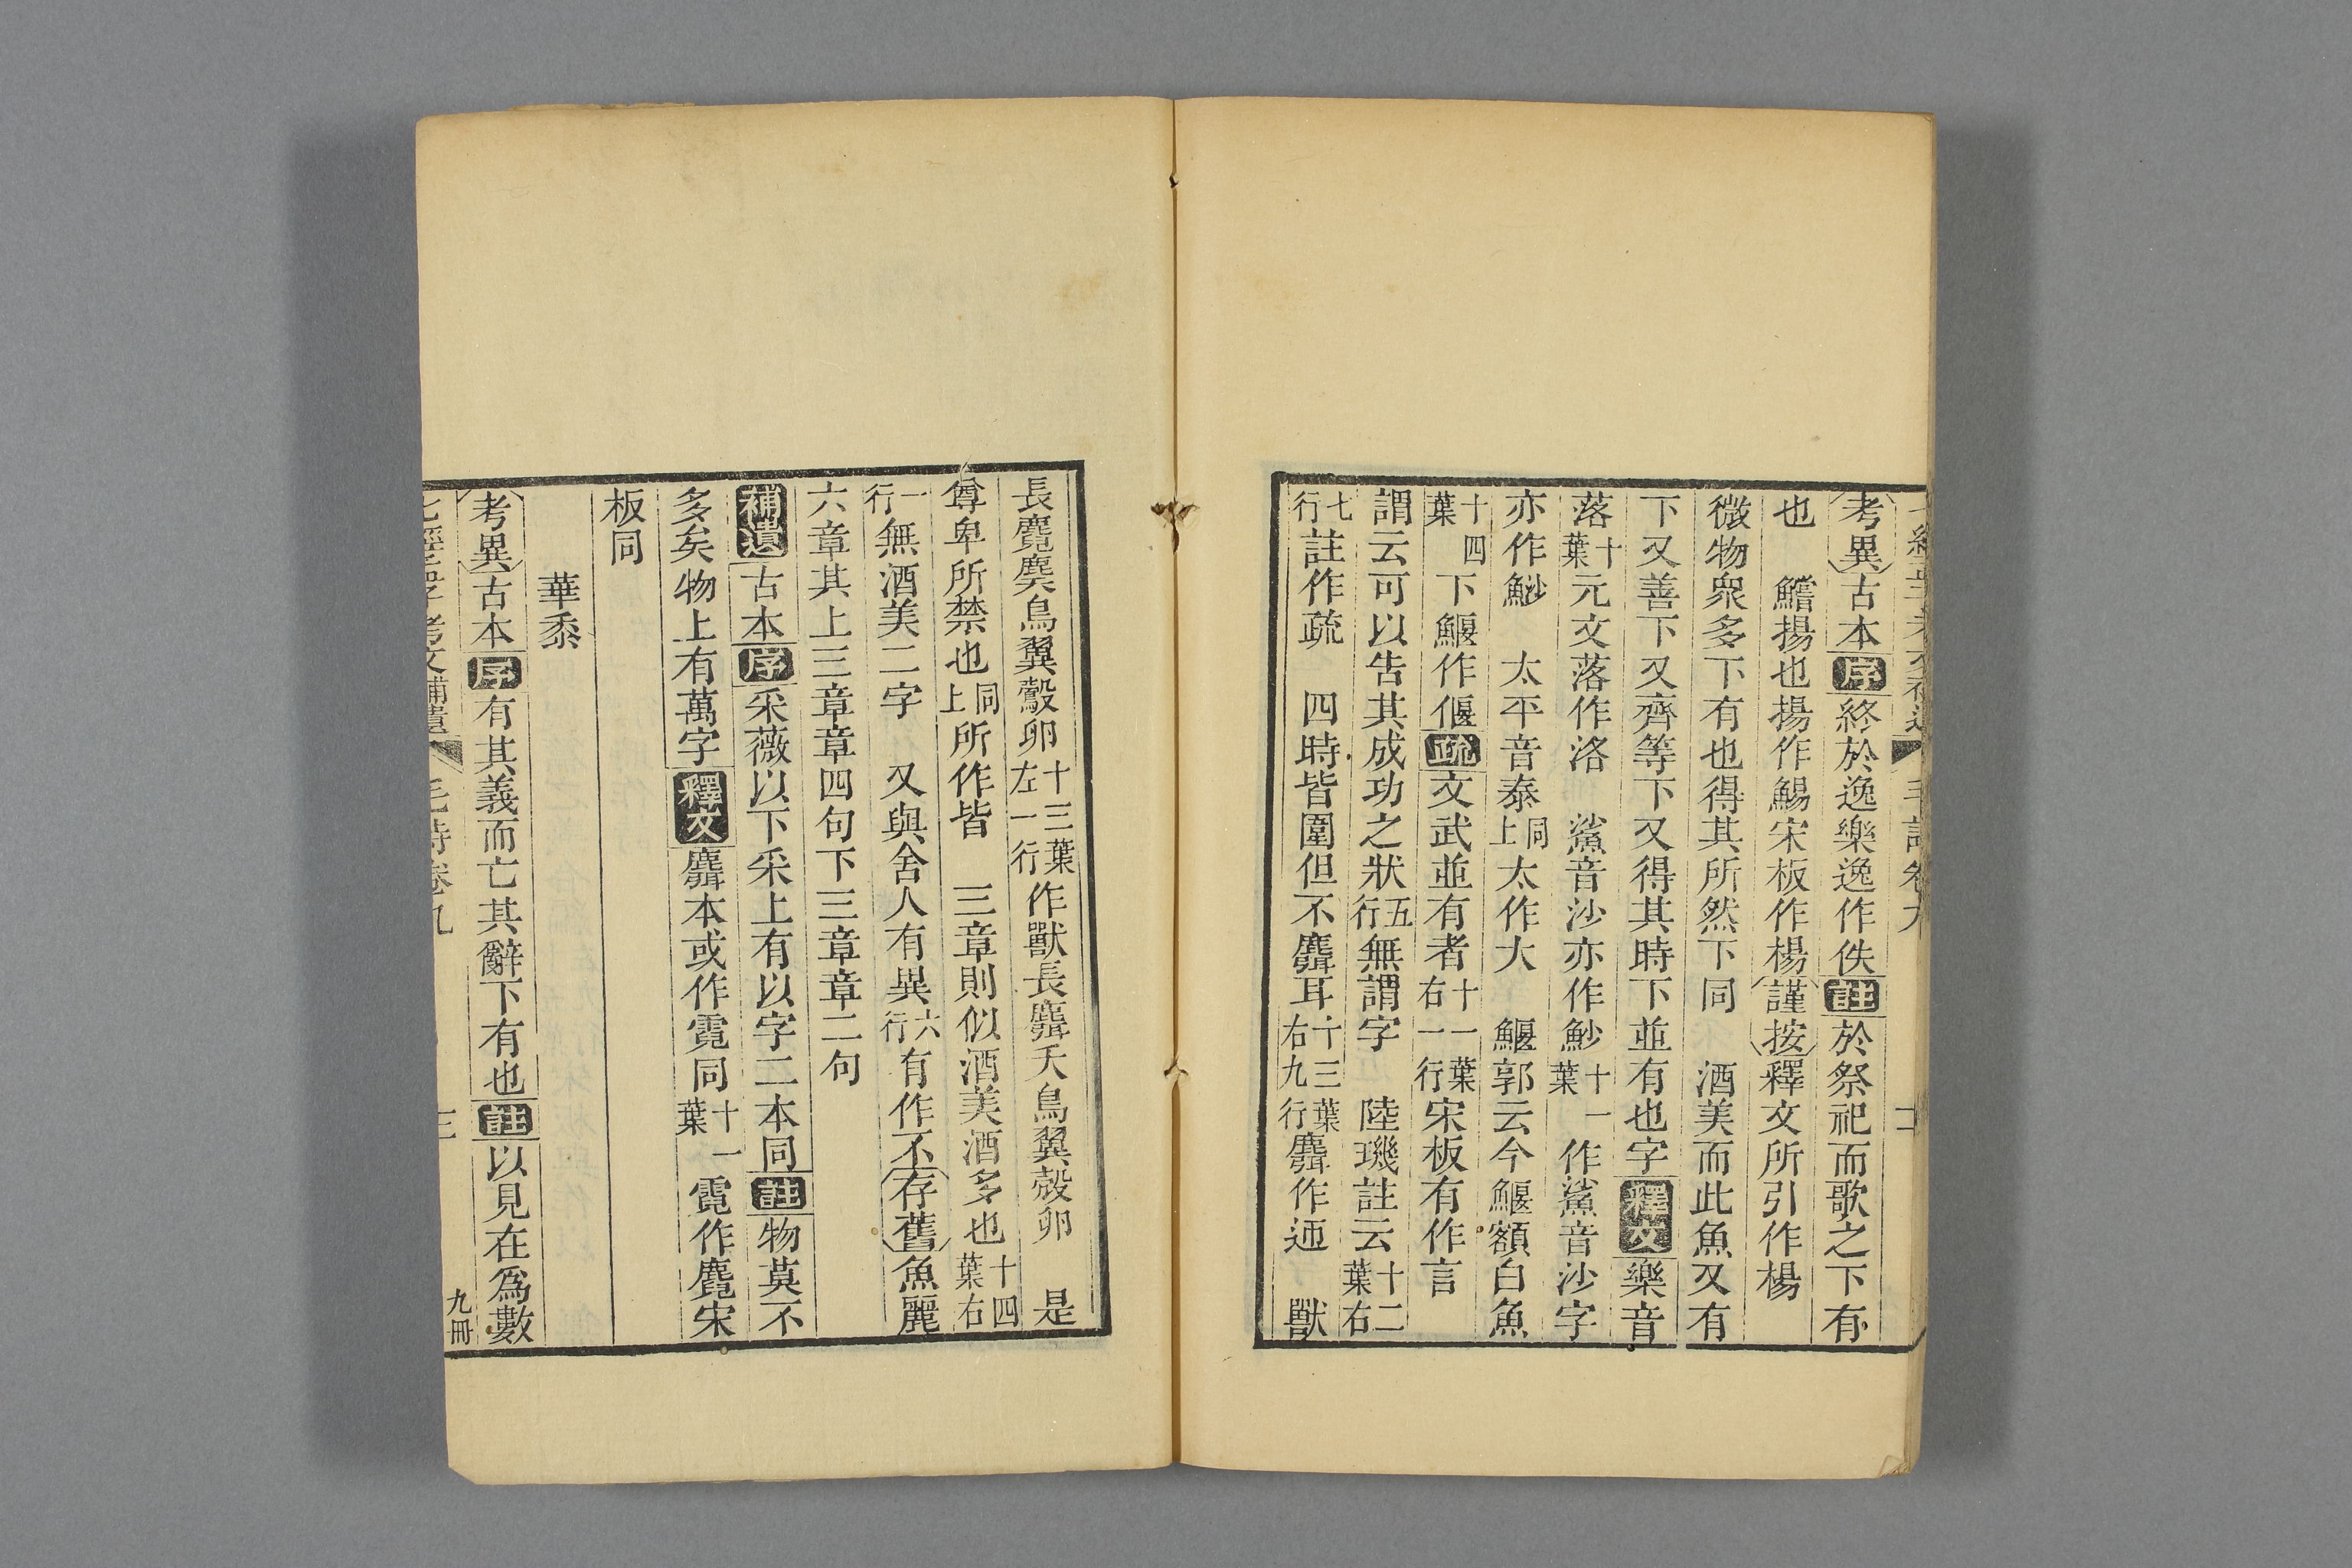 考異古本序終於逸樂逸作佚註於祭祀而歌之下有
也　鱨揚也揚作鍚宋板作楊謹按釋文所引作楊
微物衆多下有也得其所然下同　酒美而此魚又有
下又善下又齊等下又得其時下並有也字釋文樂音
落十葉元文落作洛　鯊音沙亦作魦十一葉作鯊音沙字
亦作魦　太平音泰同上太作大　鰋郭云今鰋額白魚
十四葉下鰋作偃疏文武並有者十一葉右一行宋板有作言
謂云可以告其成功之狀五行無謂字　陸璣註云十二葉右
七行註作疏　四時皆圍但不麛耳十三葉右九行麛作迊　獸
長麑麌鳥翼鷇卵十三葉左一行作獸長麛夭鳥翼殼卵　是
尊卑所禁也同上所作皆　三章則似酒美酒多也十四葉右
一行無酒美二字　又與舍人有異六行有作不存舊魚麗
六章其上三章章四句下三章章二句
補遺古本序采薇以下采上有以字二本同註物莫不
多矣物上有萬字釋文麛本或作霓同十一葉霓作麑宋
板同
華黍
考異古本序有其義而亡其辭下有也註以見在爲數
七經孟子考文補遺　毛詩卷九　九冊